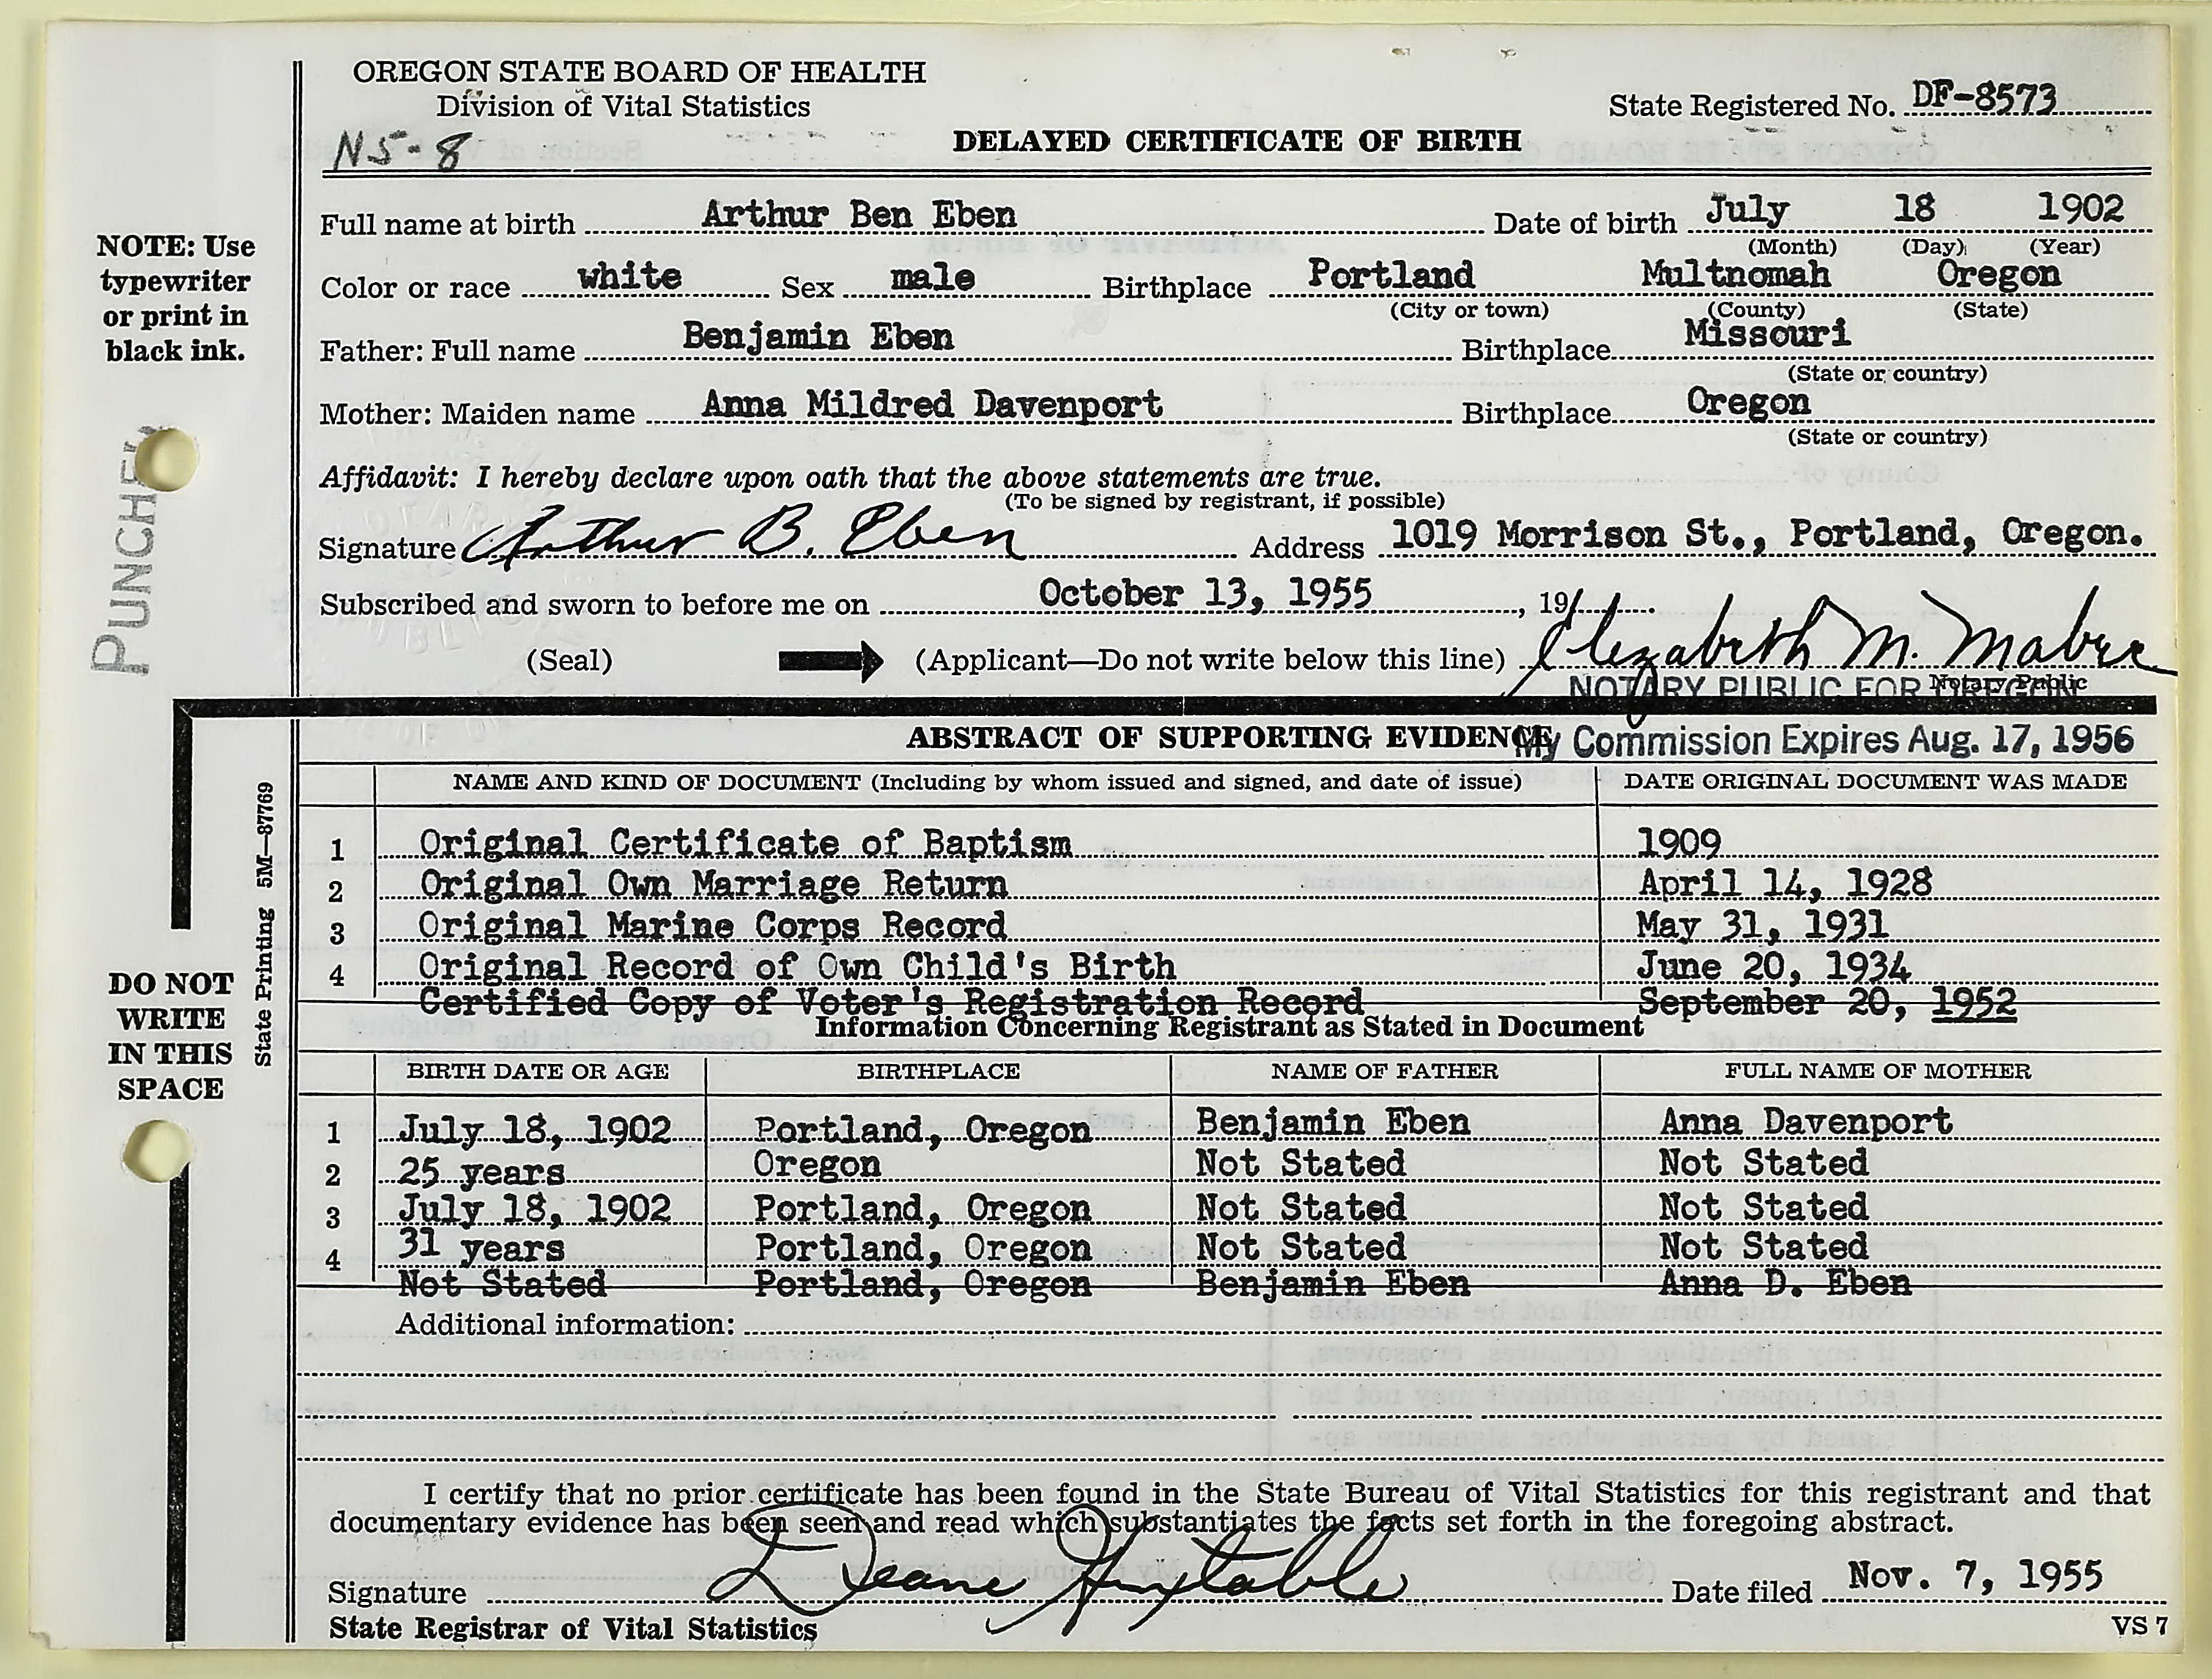 OREGON STATE BOARD OF HEALTH
Division of Vital Statistics
State Registered No. DF-8573
N5-8
DELAYED CERTIFICATE OF BIRTH
NOTE: Use
typewriter
or print in
black ink.
PUNCHED
Full name at birth Arthur Ben Eben Date of birth July 18 1902
(Month) (Day) (Year)
Color or race white Sex male Birthplace Portland Multnomah Oregon
(City or town) (County) (State)
Father: Full name Benjamin Eben Birthplace Missouri
(State or country)
Mother: Maiden name Anna Mildred Davenport Birthplace Oregon
(State or country)
Affidavit: I hereby declare upon oath that the above statements are true.
(To be signed by registrant, if possible)
Signature Arthur B. Eben Address 1019 Morrison St., Portland, Oregon.
Subscribed and sworn to before me on October 13, 1955, 19
(Seal) (Applicant—Do not write below this line) Elizabeth M. Mabee
Notary Public
NOTARY PUBLIC FOR OREGON
My Commission Expires Aug. 17, 1956
ABSTRACT OF SUPPORTING EVIDENCE
State Printing 5M—87769
NAME AND KIND OF DOCUMENT (Including by whom issued and signed, and date of issue) DATE ORIGINAL DOCUMENT WAS MADE
1 Original Certificate of Baptism 1909
2 Original Own Marriage Return April 14, 1928
3 Original Marine Corps Record May 31, 1931
4 Original Record of Own Child's Birth June 20, 1934
Certified Copy of Voter's Registration Record September 20, 1952
DO NOT
WRITE
IN THIS
SPACE
Information Concerning Registrant as Stated in Document
BIRTH DATE OR AGE BIRTHPLACE NAME OF FATHER FULL NAME OF MOTHER
1 July 18, 1902 Portland, Oregon Benjamin Eben Anna Davenport
2 25 years Oregon Not Stated Not Stated
3 July 18, 1902 Portland, Oregon Not Stated Not Stated
4 31 years Portland, Oregon Not Stated Not Stated
Not Stated Portland, Oregon Benjamin Eben Anna D. Eben
Additional information:
I certify that no prior certificate has been found in the State Bureau of Vital Statistics for this registrant and that
documentary evidence has been seen and read which substantiates the facts set forth in the foregoing abstract.
Signature Deane Huxtable Date filed Nov. 7, 1955
State Registrar of Vital Statistics
VS 7